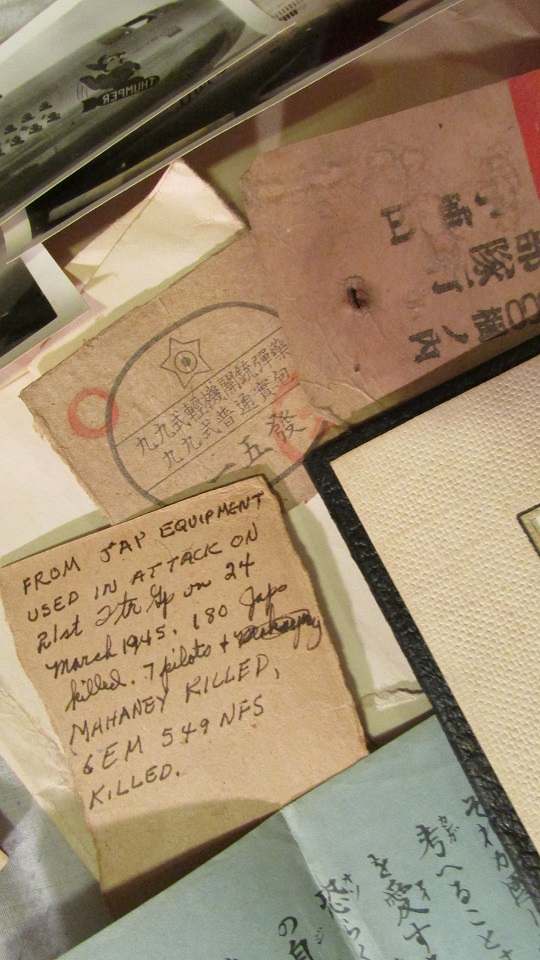 THUMPER
部隊
九九式輕機關銃彈藥
九九式普通實包
一五發
FROM JAP EQUIPMENT
USED IN ATTACK ON
21st Ftr Gp on 24
March 1945. 180 Japs
killed. 7 pilots +
MAHANEY KILLED,
6 EM 549 NFS
KILLED.
考へること
を愛す
恐らく
の自